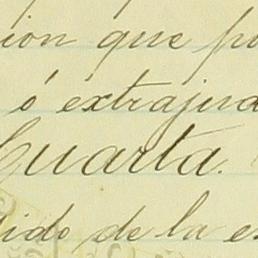 ion que p
ó extrajud
Cuarta.
dido de la es